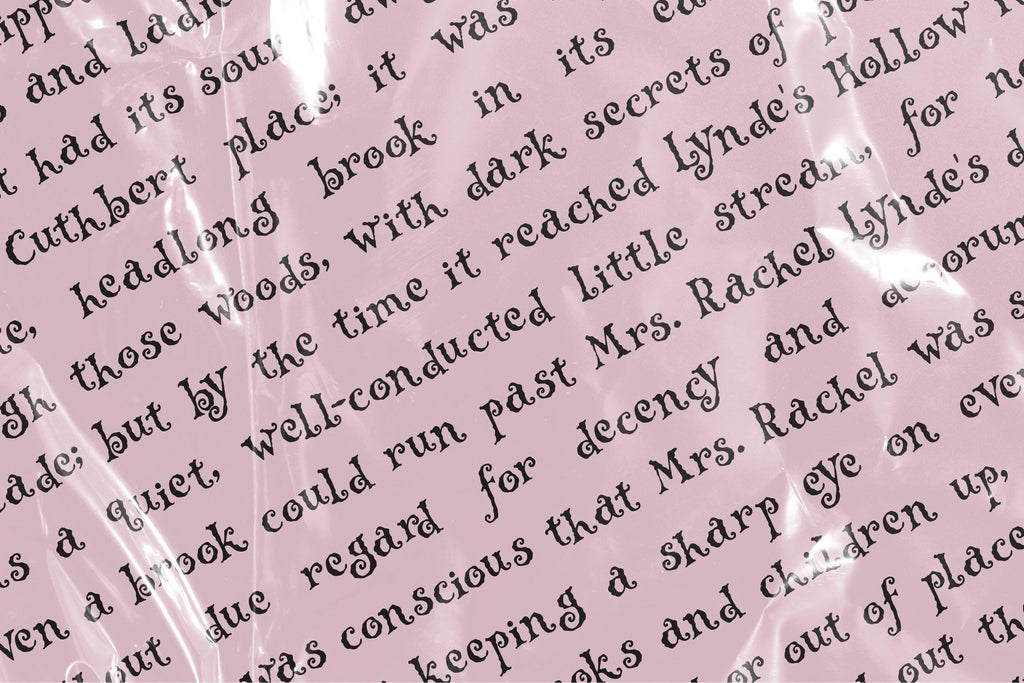 and
had its
Cuthbert place; it was
headlong brook in its
those woods, with dark secrets of
but by the time it reached Lynde's Hollow
a quiet, well-conducted little stream, for
a brook could run past Mrs. Rachel Lynde's
due regard for decency and decorum
was conscious that Mrs. Rachel was
keeping a sharp eye on
and children up,
or out of place
out